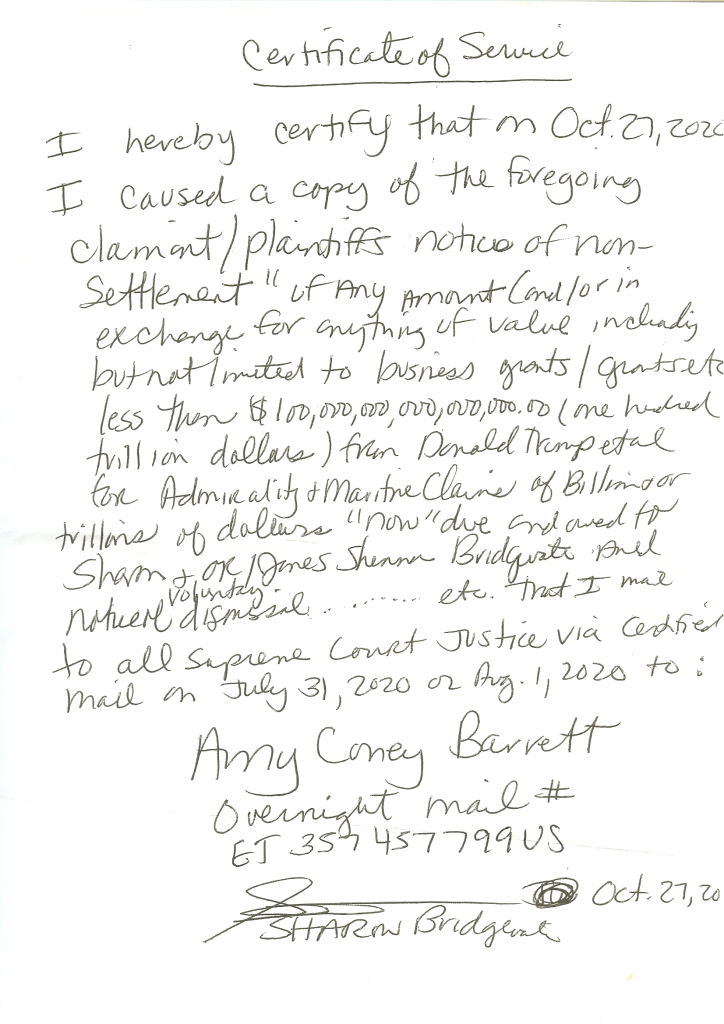 Certificate of Service
I hereby certify that on Oct. 27, 202
I caused a copy of the foregoing
clamant/plaintiffs notice of non-
Settlement " of Any amount (and/or in
exchange for anything of value includig
but not limited to business grants/grants etc
less than $100,000,000,000,000,000.00 (one hudred
trillion dollars) from Donald Trump etal
for Admirality & Maritne Claims of Billins or
trillins of dollars "now" due and owed to
Sharon & OR/James Shenna Bridgwate And
voluntary
notice dismssal .......... etc. that I mail
to all Supreme Court Justice via Certified
mail on July 31, 2020 or Aug. 1, 2020 to:
Amy Coney Barrett
Overnight mail #
EJ 357 457799US
Oct. 27, 20
SHARON Bridgewate